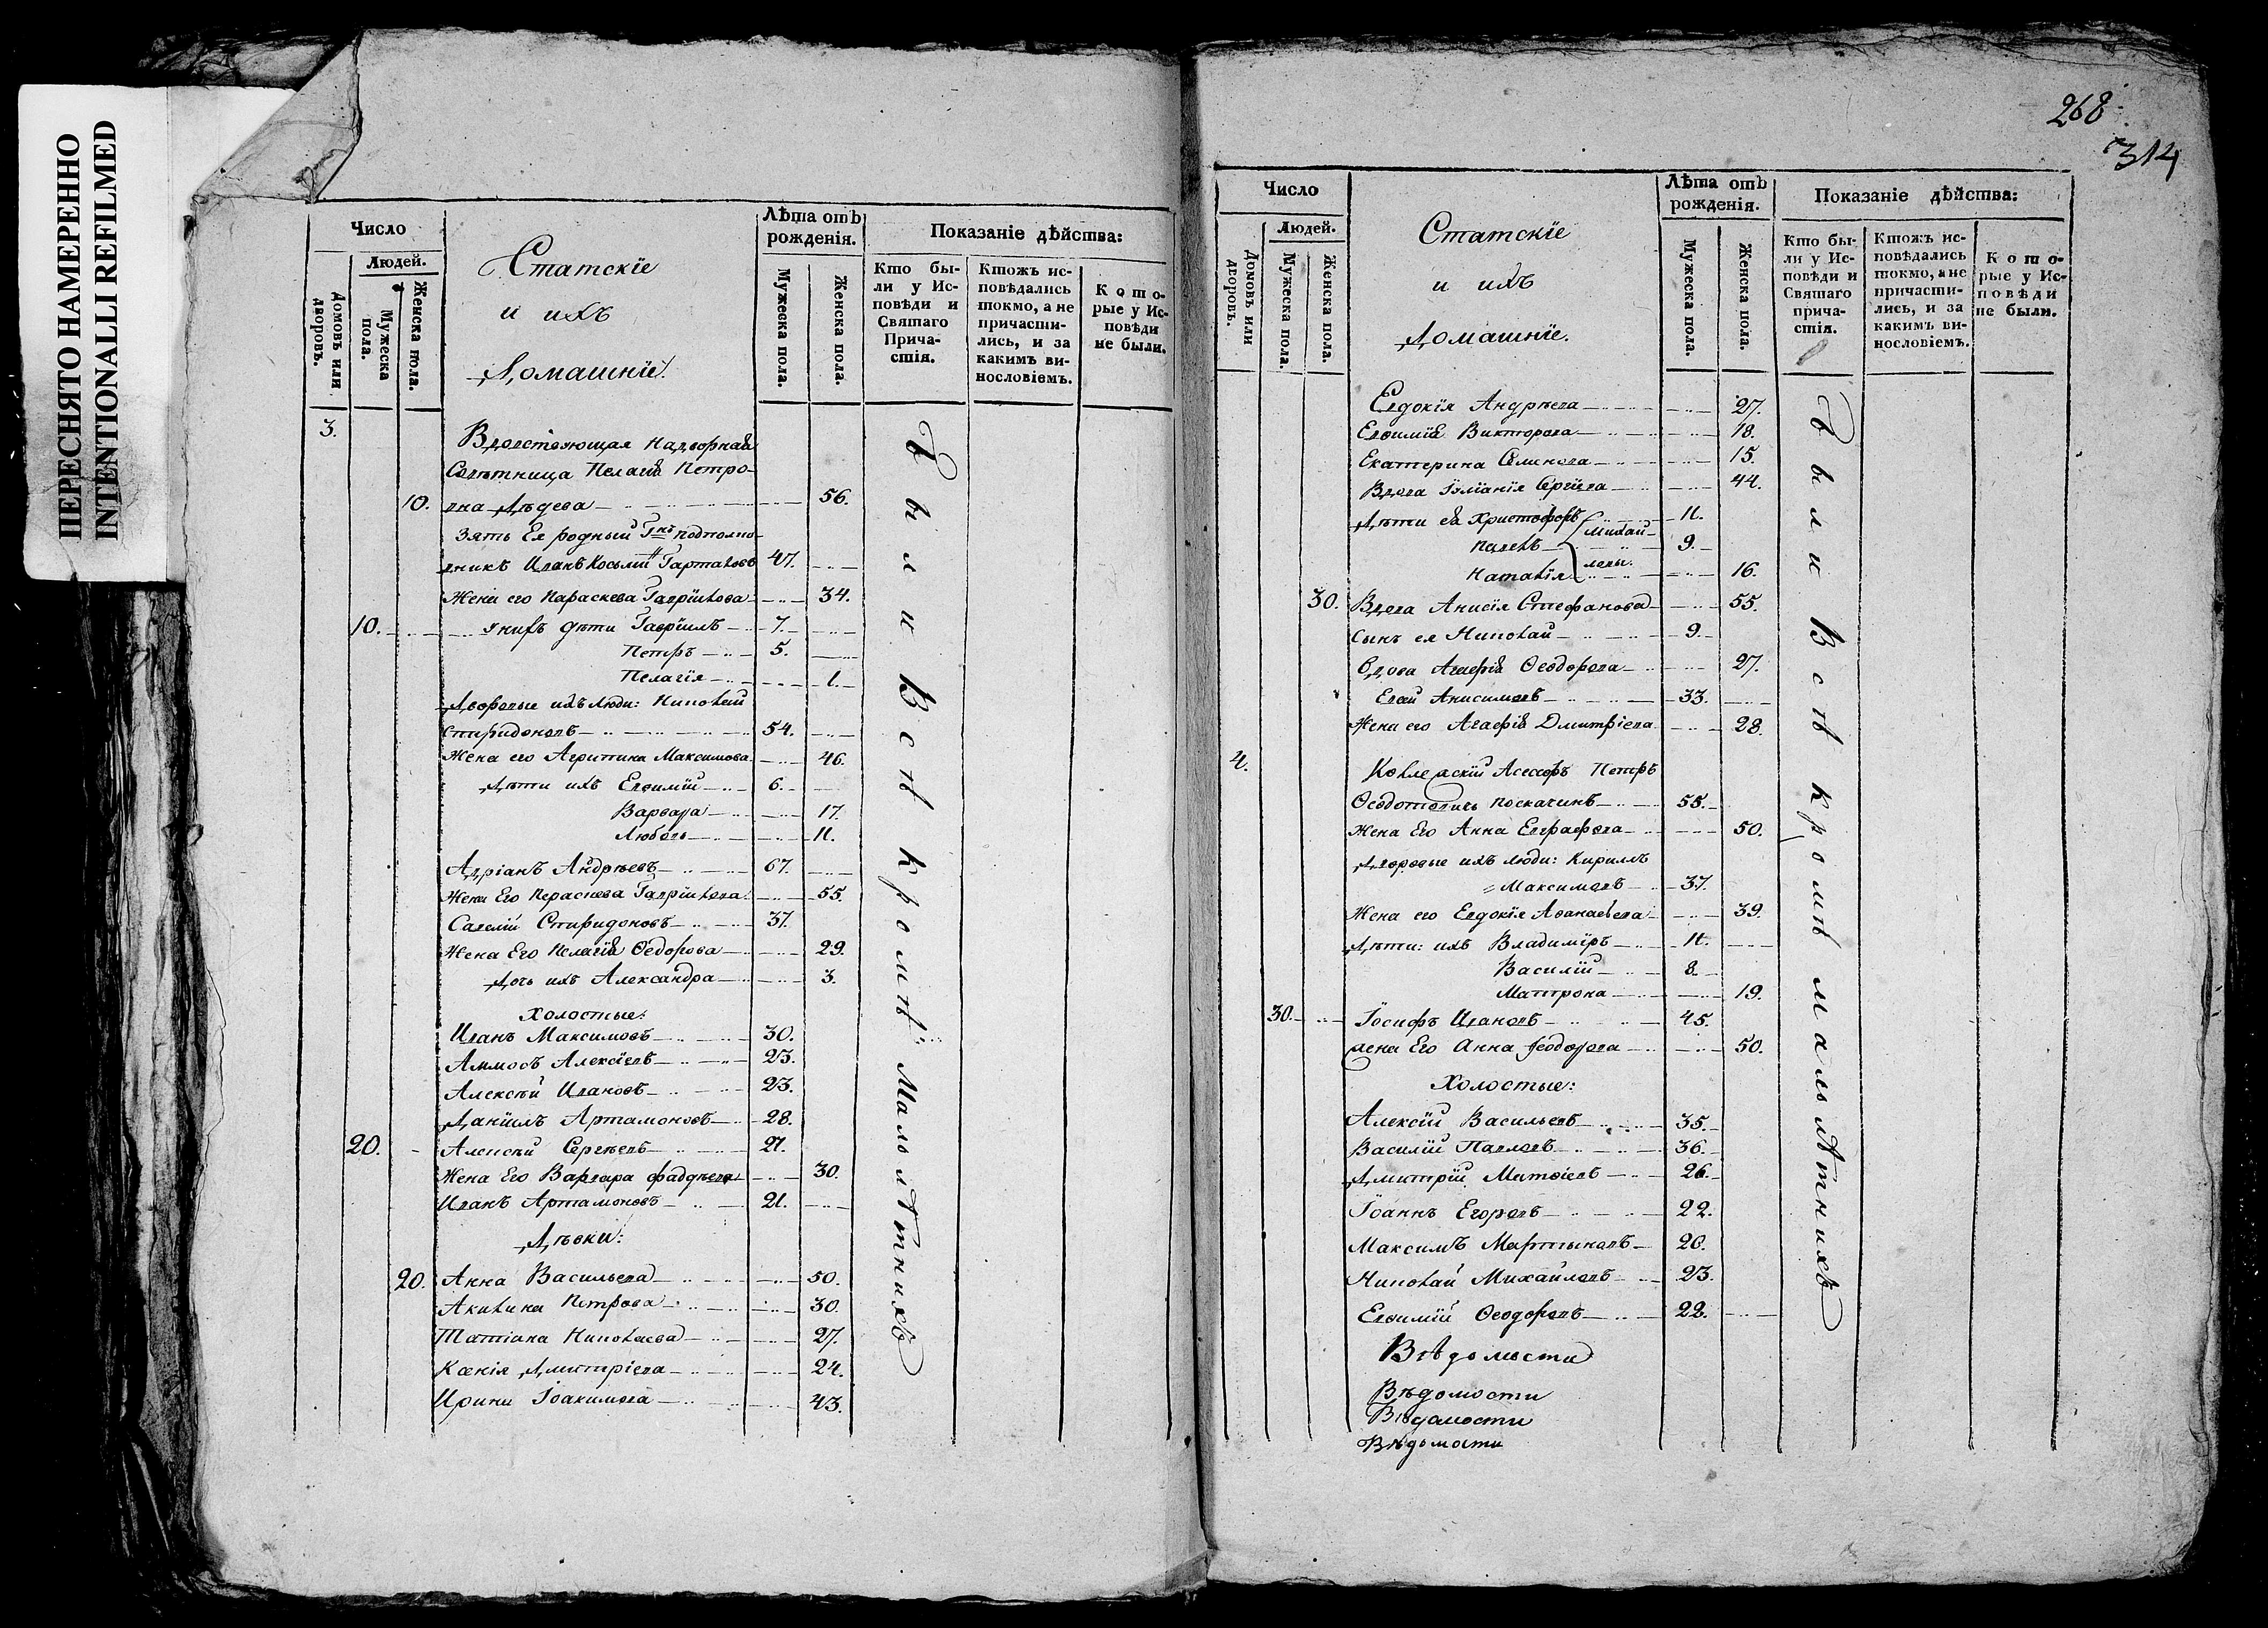 ПЕРЕСНЯТО НАМЕРЕННО
INTENTIONALLI REFILMED
Число
Людей.
Домовъ или дворовъ.
Мужеска пола.
Женска пола.
Статскіе
и ихъ
Домашніе.
Лѣта отъ рожденія.
Мужеска пола.
Женска пола.
Показаніе дѣйства:
Кто были у Исповѣди и Святаго Причастія.
Ктожъ исповѣдались токмо, а не причастились, и за какимъ винословіемъ.
Которые у Исповѣди не были.
3.
Вдовствующая Надворная
Совѣтница Пелагія Петро-
10. вна 56.
Зять Ея родный Гнъ подполко-
вникъ Иванъ Косьмичъ 47.
Жена его Параскева Гавріилова 34.
10. У нихъ дѣти Гавріилъ 7.
Петръ 5.
Пелагія 1.
Дворовые ихъ люди: Николай
Спиридоновъ 54.
Жена его Агрипина Максимова 46.
Дѣти ихъ Евѳимій 6.
Варвара 17.
Любовь 11.
Адріанъ Андрѣевъ 67.
Жена Его Параскева Гавріилова 55.
Савелій Спиридоновъ 37.
Жена Его Пелагія Ѳедорова 29.
Дочь ихъ Александра 3.
Холостые:
Иванъ Максимовъ 30.
Аммосъ Алексіевъ 23.
Алексѣй Ивановъ 23.
Даніилъ Артамоновъ 28.
20. Алексѣй Сергѣевъ 27.
Жена Его Варвара Фаддѣева 30.
Иванъ Артамоновъ 21.
Дѣвки:
20. Анна Васильева 50.
Акилина Петрова 30.
Татіана Николаева 27.
Ксенія Дмитріева 24.
Ирина Іоакимова 43.
Были Всѣ кромѣ Малолѣтнихъ
268
314
Число
Людей.
Домовъ или дворовъ.
Мужеска пола.
Женска пола.
Статскіе
и ихъ
Домашніе.
Лѣта отъ рожденія.
Мужеска пола.
Женска пола.
Показаніе дѣйства:
Кто были у Исповѣди и Святаго причастія.
Ктожъ исповѣдались токмо, а не причастились, и за какимъ винословіемъ.
Которые у Исповѣди не были.
Евдокія Андрѣева 27.
Евѳимія Викторова 18.
Екатерина 15.
Вдова Іуліанія Сергіева 44.
Дѣти ея Христофоръ 11.
Павелъ Михай- 9.
Наталія ловы. 16.
30. Вдова Анисія Стефанова 55.
Сынъ ея Николай 9.
Вдова Агафія Ѳеодорова 27.
Анисимовъ 33.
Жена его Агафія Дмитріева 28.
4. Коллежскій Асессоръ Петръ
Ѳеодотовичь Поскачинъ 55.
Жена Его Анна Евграфова 50.
Дворовые ихъ люди: Кирилъ
Максимовъ 37.
Жена его Евдокія Аѳанасьева 39.
Дѣти: ихъ Владимиръ 11.
Василій 8.
Матрона 19.
30. Іосифъ Ивановъ 45.
Жена Его Анна Ѳеодорова 50.
Холостые:
Алексій Васильевъ 35.
Василій Павловъ 36.
Дмитрій 26.
Іоаннъ Егоровъ 22.
Максимъ Мартыновъ 20.
Николай Михайловъ 23.
Евѳимій Ѳеодоровъ 22.
Вѣдомости
Вѣдомости
Вѣдомости
Вѣдомости
Были Всѣ кромѣ малолѣтнихъ